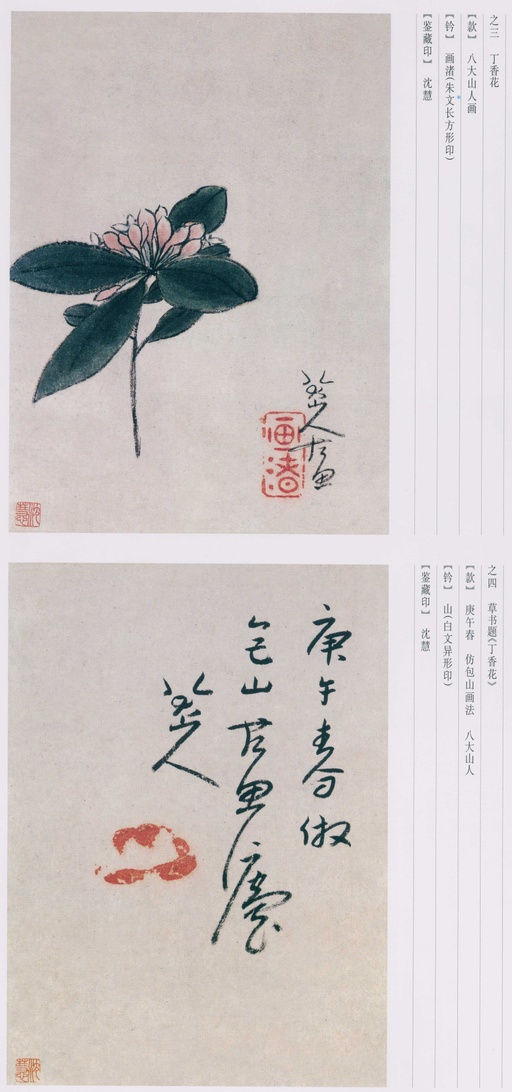 之三　丁香花
【款】　八大山人画
【钤】　画渚(朱文长方形印)
【鉴藏印】　沈慧
八大山人画
画渚
之四　草书题《丁香花》
【款】　庚午春　仿包山画法　八大山人
【钤】　山(白文异形印)
【鉴藏印】　沈慧
庚午春倣
包山画法
八大山人